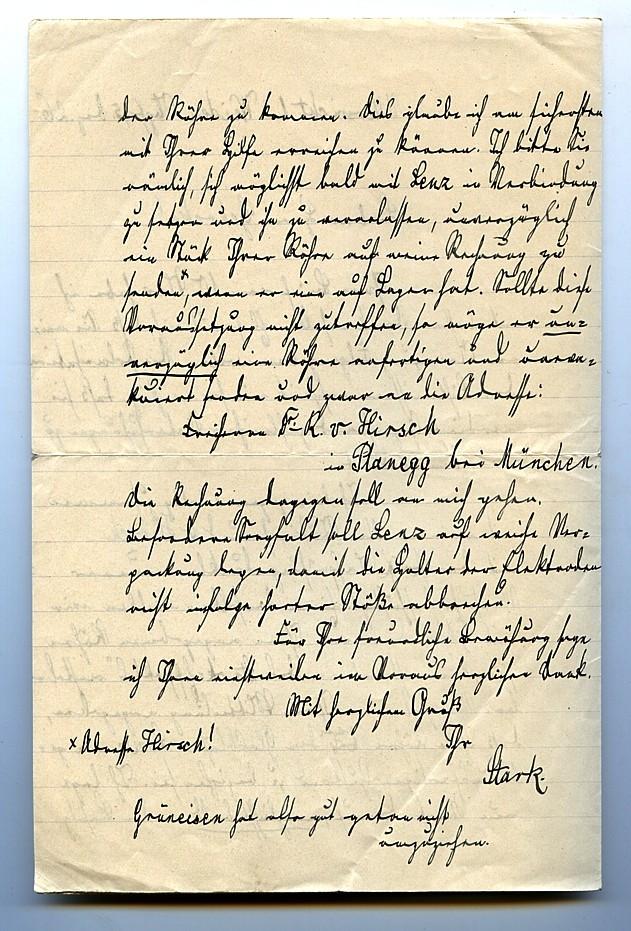 der Röhre zu kommen. Dies glaube ich am sichersten
mit Ihrer Hilfe erreichen zu können. Ich bitte Sie
nämlich, sich möglichst bald mit Lenz in Verbindung
zu setzen und ihn zu veranlassen, unverzüglich
ein Stück Ihrer Röhre auf meine Rechnung zu
senden,ˣ wenn er eine auf Lager hat. Sollte diese
Voraussetzung nicht zutreffen, so möge er un=
verzüglich eine Röhre anfertigen und
senden und zwar an die Adresse:
Freiherrn F. K. v. Hirsch
in Planegg bei München.
Die Rechnung dagegen soll an mich gehen.
Besondere Sorgfalt soll Lenz auf weiche Ver=
packung legen, damit die Halter der Elektroden
nicht infolge harter Stöße abbrechen.
Für Ihre freundliche Bemühung sage
ich Ihnen einstweilen im Voraus herzlichen Dank.
Mit herzlichem Gruß
x Adresse Hirsch!
Ihr
Stark.
Grüneisen hat also gut getan nicht
umzuziehen.